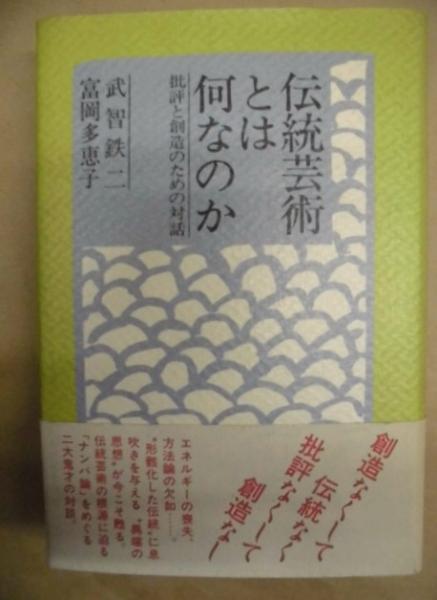 伝統芸術
とは
何なのか
批評と創造のための対話
武智鉄二
富岡多恵子
創造なくして
伝統なく
批評なくして
創造なし
エネルギーの喪失、
方法論の欠如……。
“形骸化した伝統”に息
吹きを与える
思想”が今こそ甦る。
伝統芸術の根源に迫る
「ナンバ論」をめぐる
二大鬼才の対談。